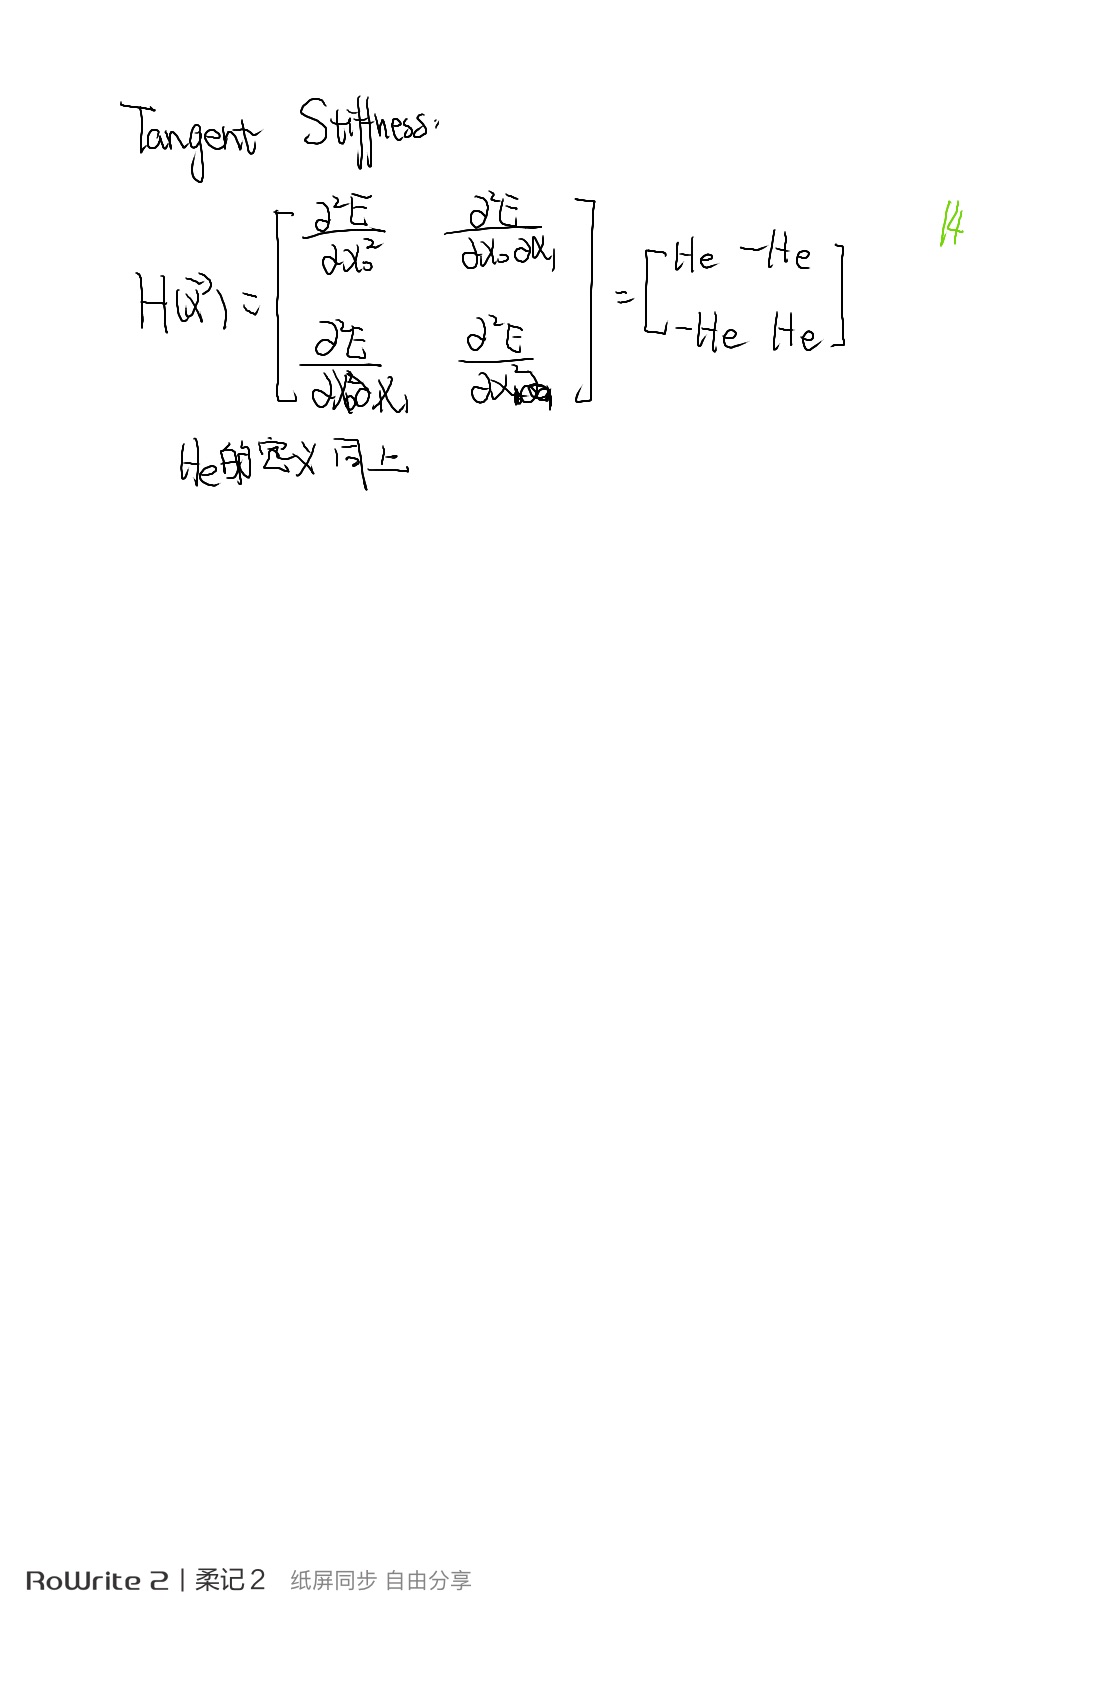 Tangent Stiffness:
14
H(x⃗) = [ ∂²E/∂x₀² ∂²E/∂x₀∂x₁ ; ∂²E/∂x₀∂x₁ ∂²E/∂x₁² ] = [ He -He ; -He He ]
He的定义同上
RoWrite 2 | 柔记 2 纸屏同步 自由分享